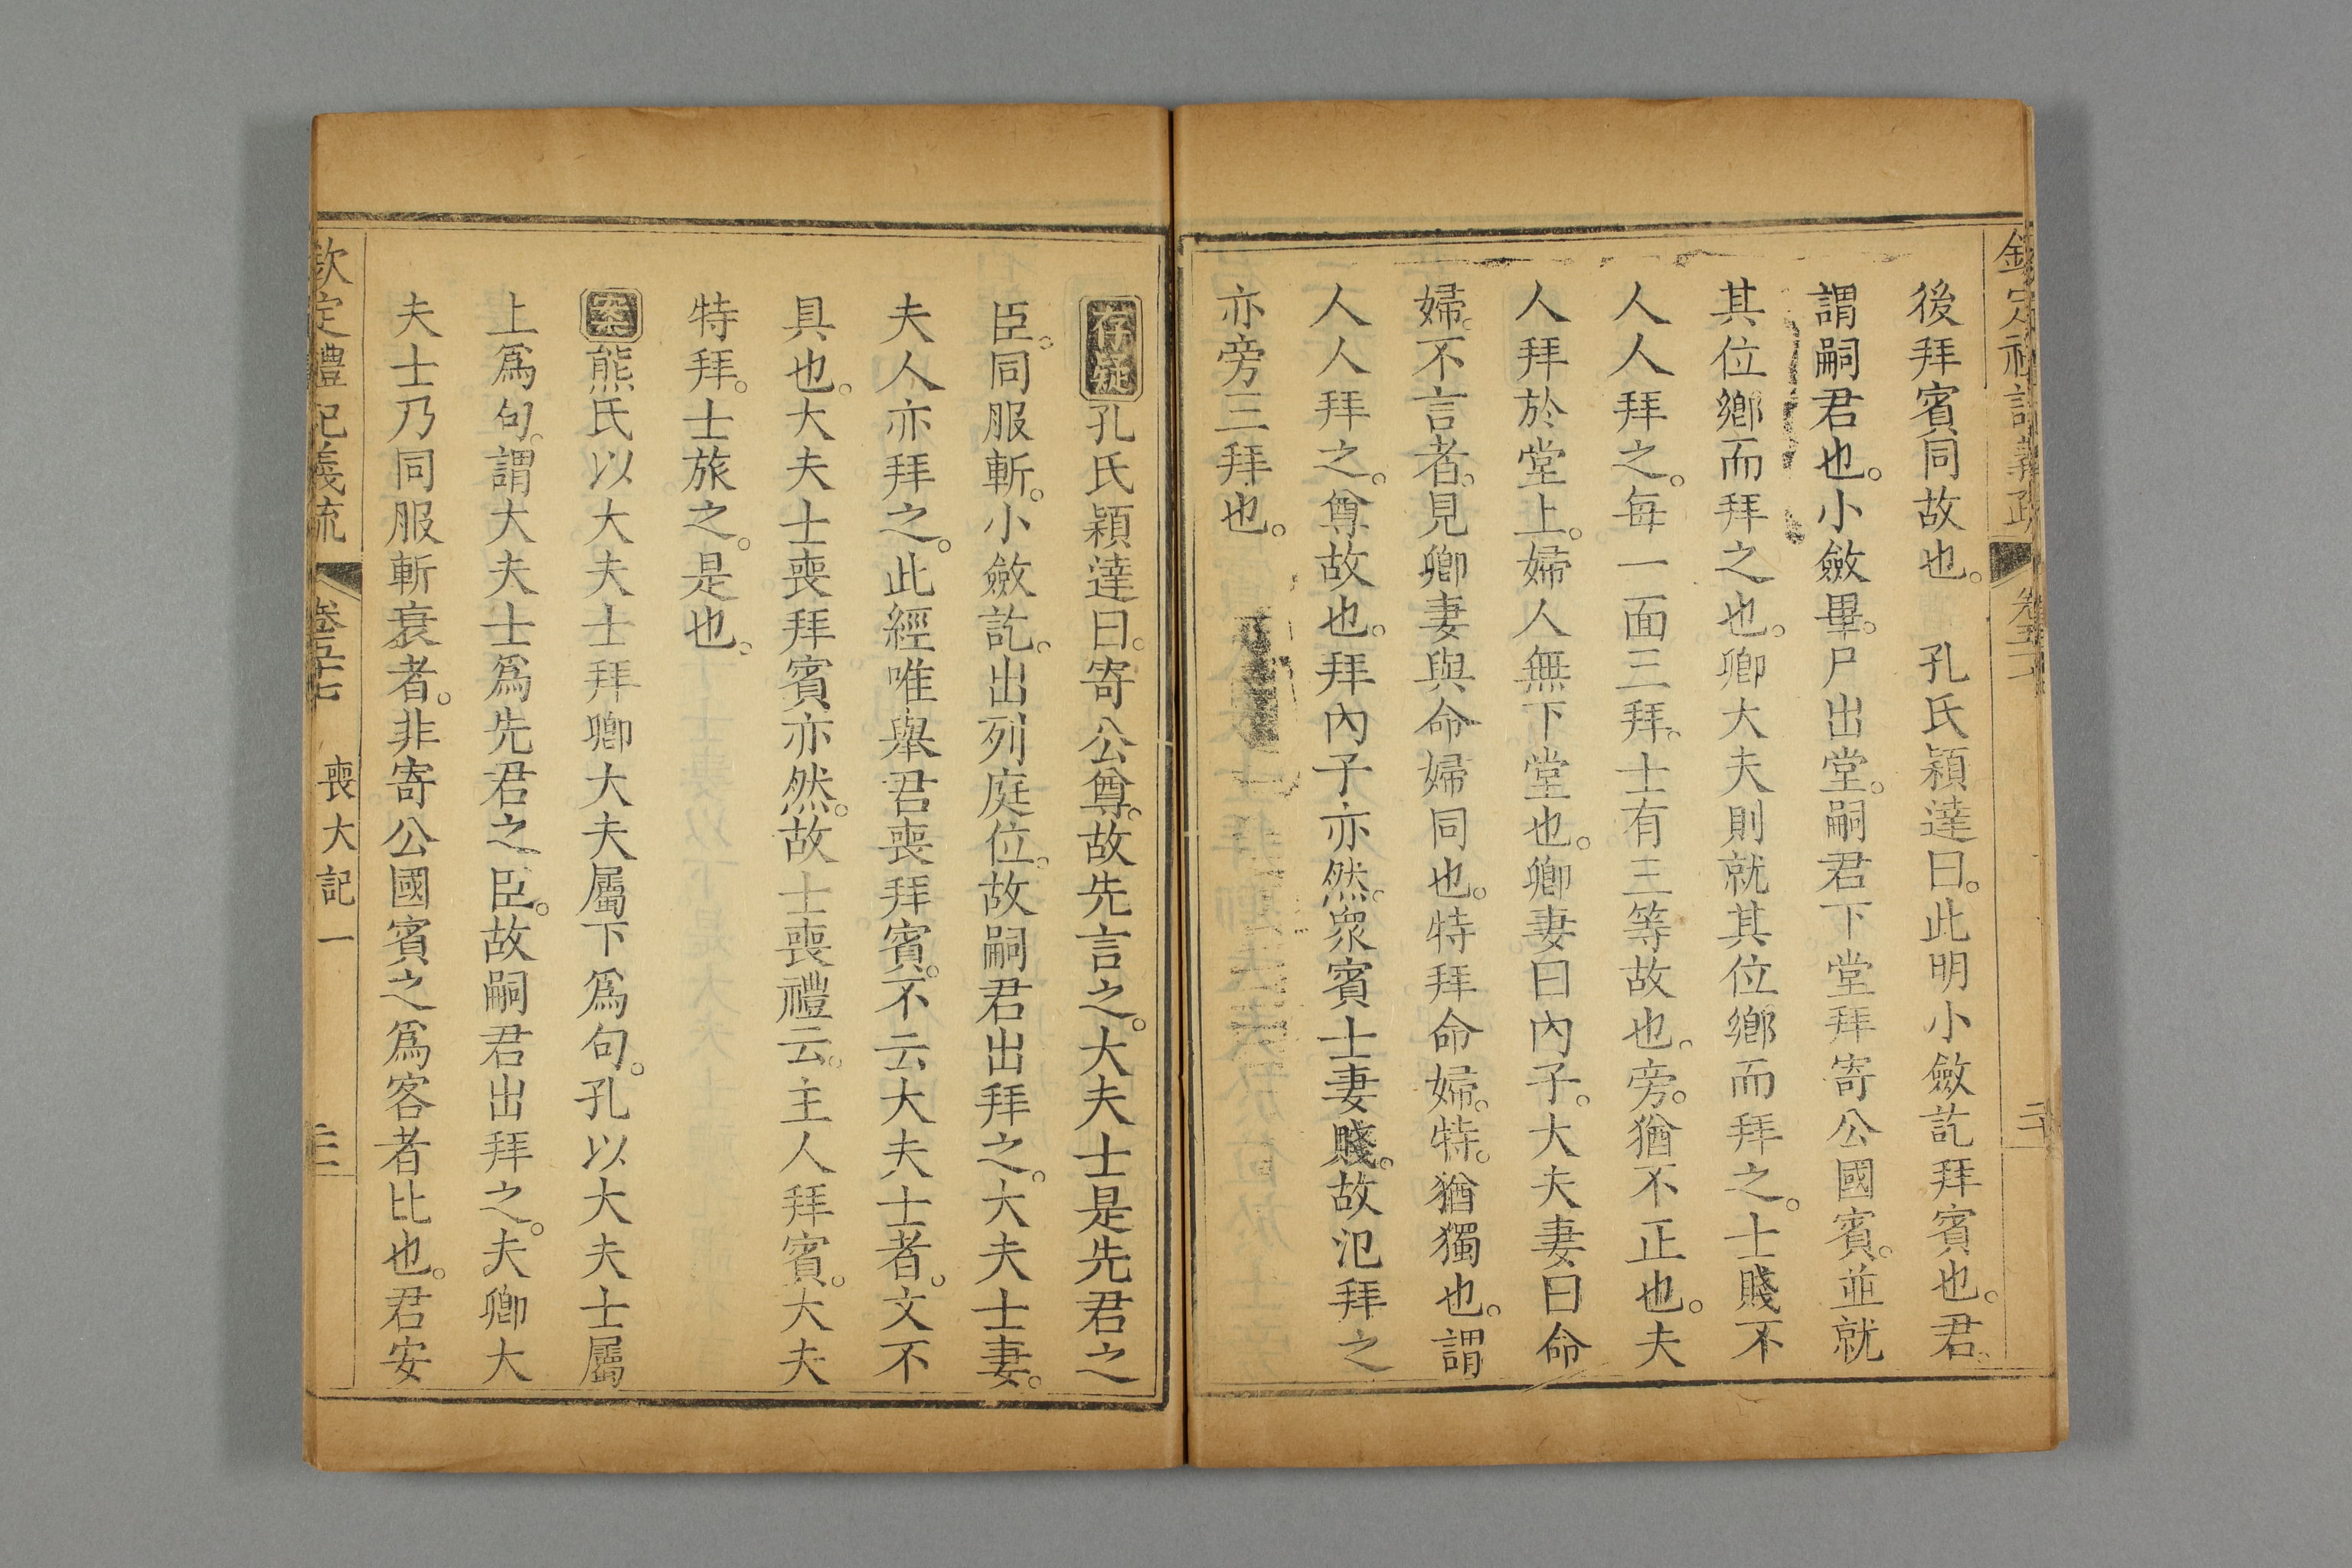 後拜賓同故也。　孔氏穎達曰。此明小斂訖拜賓也。君。
謂嗣君也。小斂畢。尸出堂。嗣君下堂拜寄公國賓。並就
其位鄉而拜之也。卿大夫則就其位鄉而拜之。士賤不
人人拜之。每一面三拜。士有三等故也。旁。猶不正也。夫
人拜於堂上。婦人無下堂也。卿妻曰內子。大夫妻曰命
婦。不言者。見卿妻與命婦同也。特拜命婦。特。猶獨也。謂
人人拜之。尊故也。拜內子亦然。眾賓士妻賤。故氾拜之
亦旁三拜也。
存疑孔氏穎達曰。寄公尊。故先言之。大夫士是先君之
臣。同服斬。小斂訖。出列庭位。故嗣君出拜之。大夫士妻。
夫人亦拜之。此經唯舉君喪拜賓。不云大夫士者。文不
具也。大夫士喪拜賓亦然。故士喪禮云。主人拜賓。大夫
特拜。士旅之。是也。
案熊氏以大夫士拜卿大夫屬下爲句。孔以大夫士屬
上爲句。謂大夫士爲先君之臣。故嗣君出拜之。夫卿大
夫士乃同服斬衰者。非寄公國賓之爲客者比也。君安
欽定禮記義疏　卷五十七　喪大記一